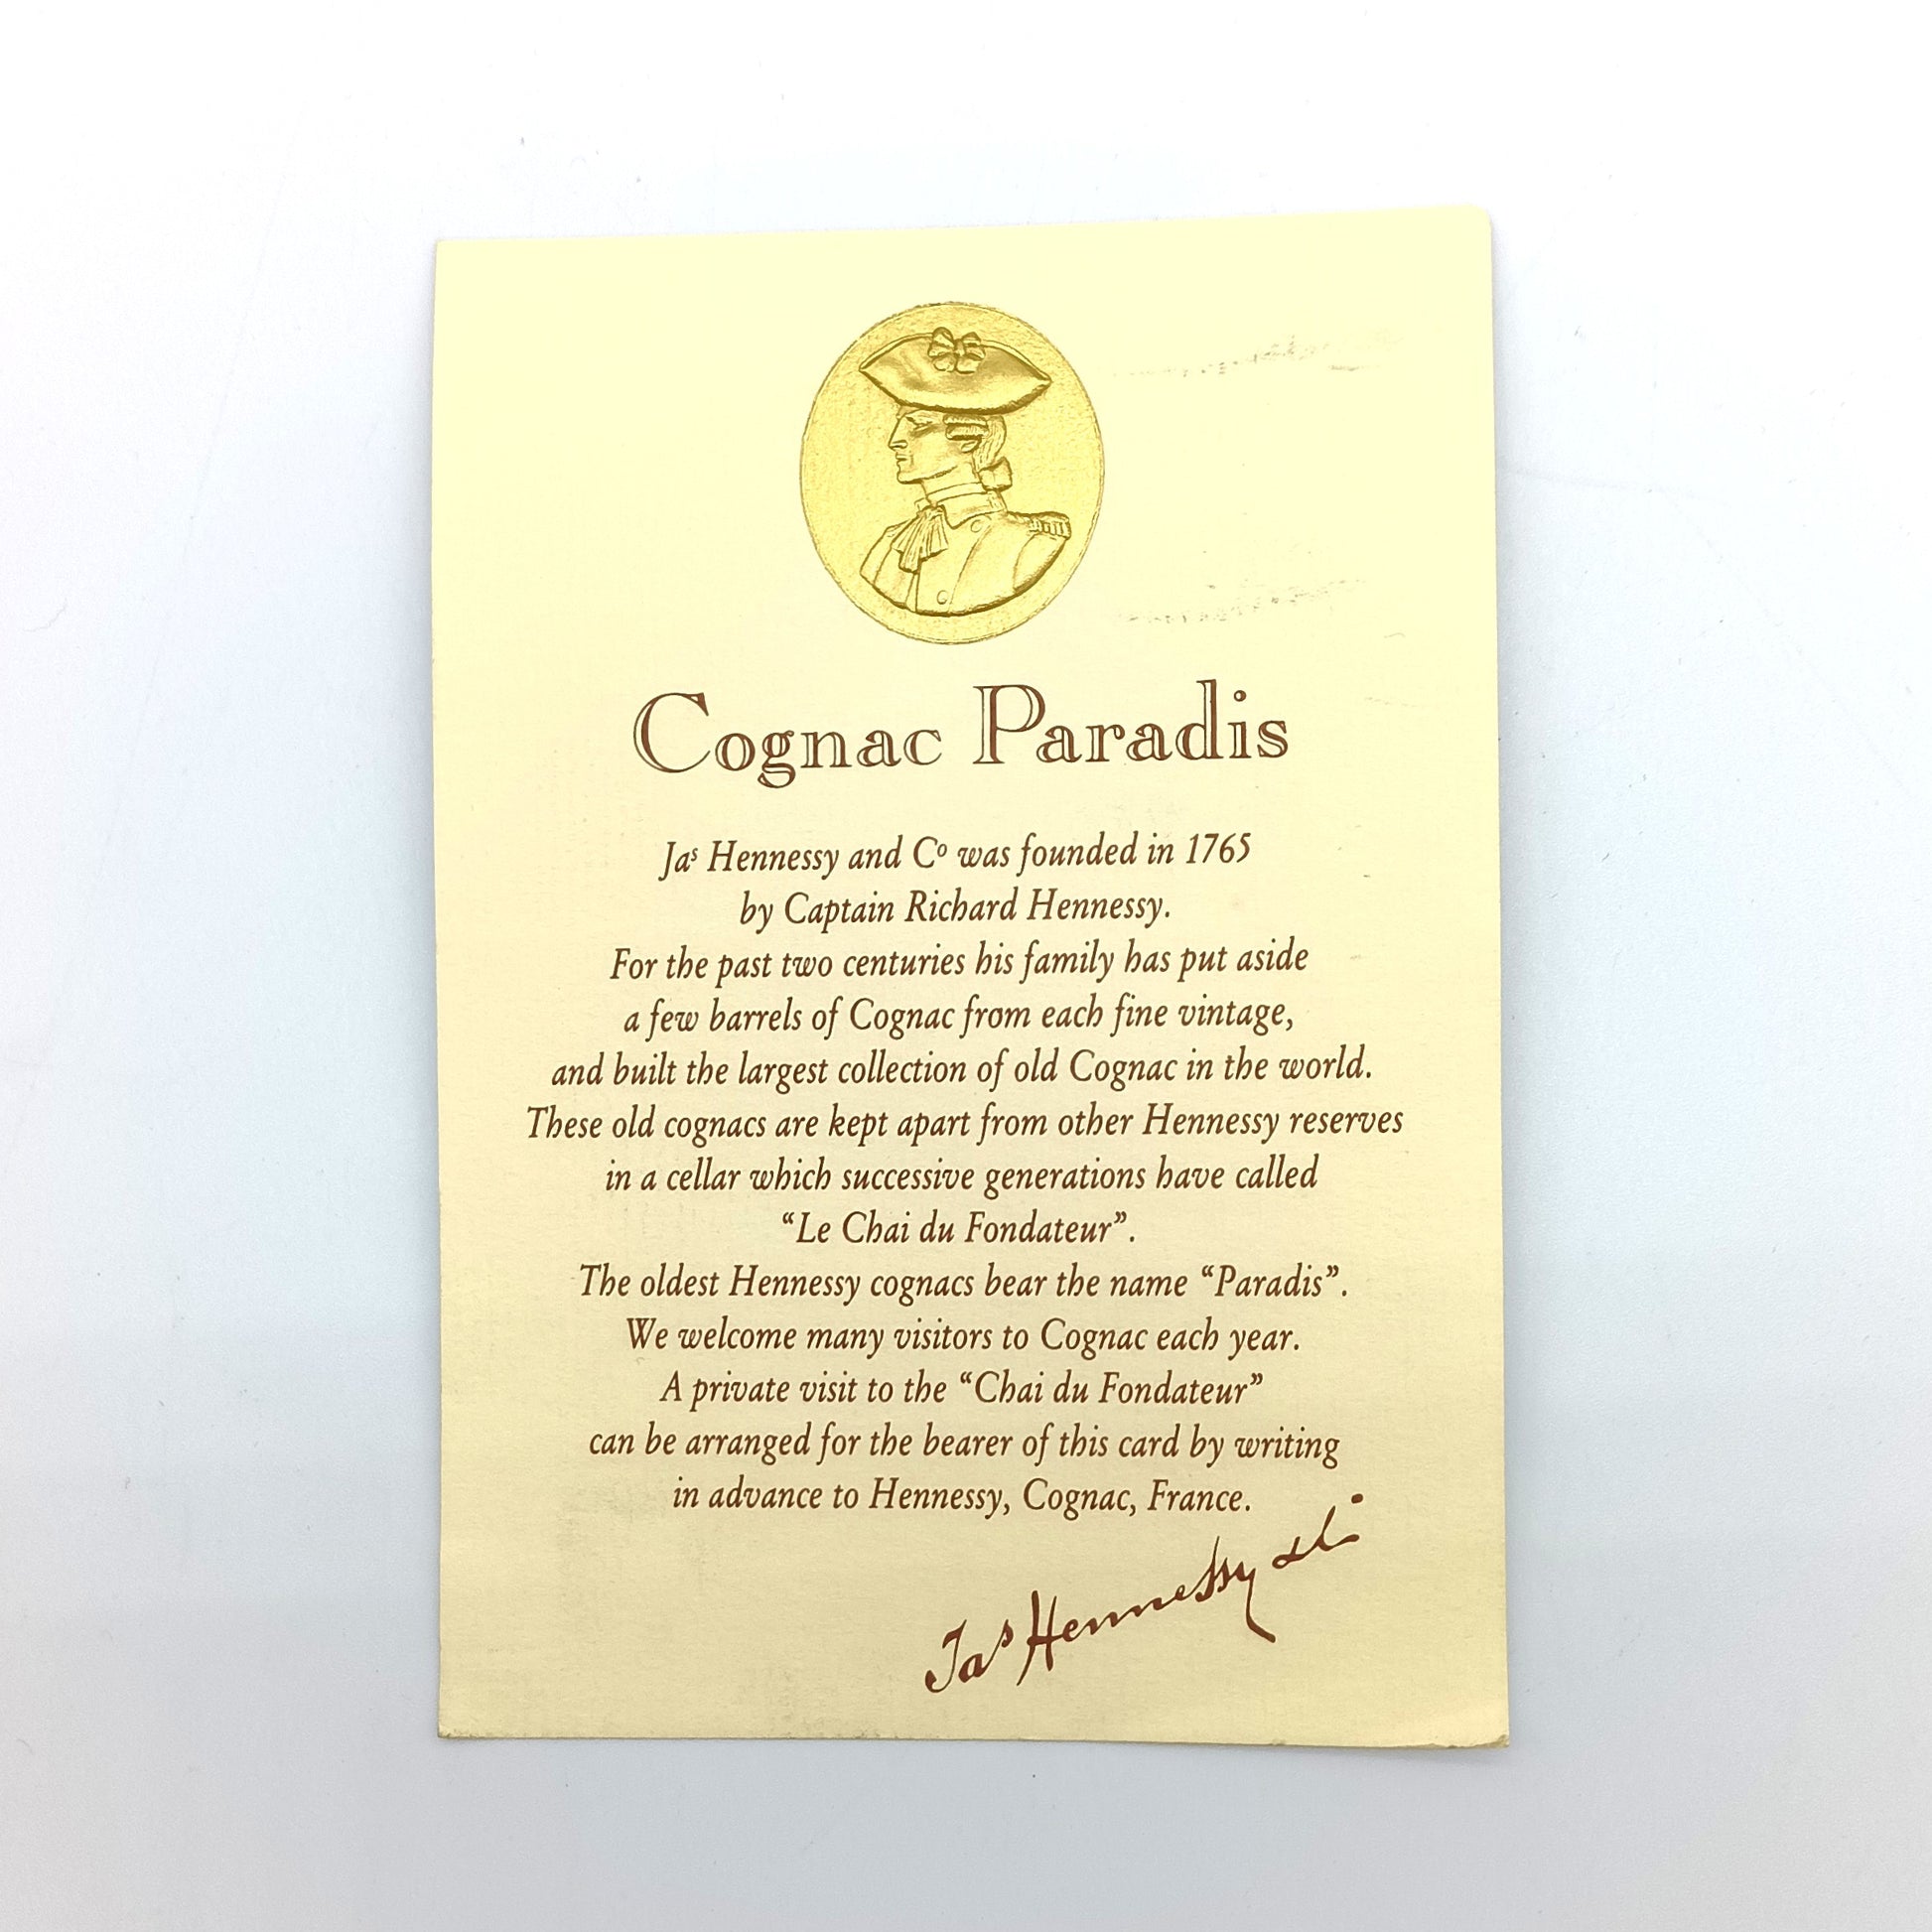 Cognac Paradis
Jaˢ Hennessy and Cº was founded in 1765
by Captain Richard Hennessy.
For the past two centuries his family has put aside
a few barrels of Cognac from each fine vintage,
and built the largest collection of old Cognac in the world.
These old cognacs are kept apart from other Hennessy reserves
in a cellar which successive generations have called
“Le Chai du Fondateur”.
The oldest Hennessy cognacs bear the name “Paradis”.
We welcome many visitors to Cognac each year.
A private visit to the “Chai du Fondateur”
can be arranged for the bearer of this card by writing
in advance to Hennessy, Cognac, France.
Jaˢ Hennessy